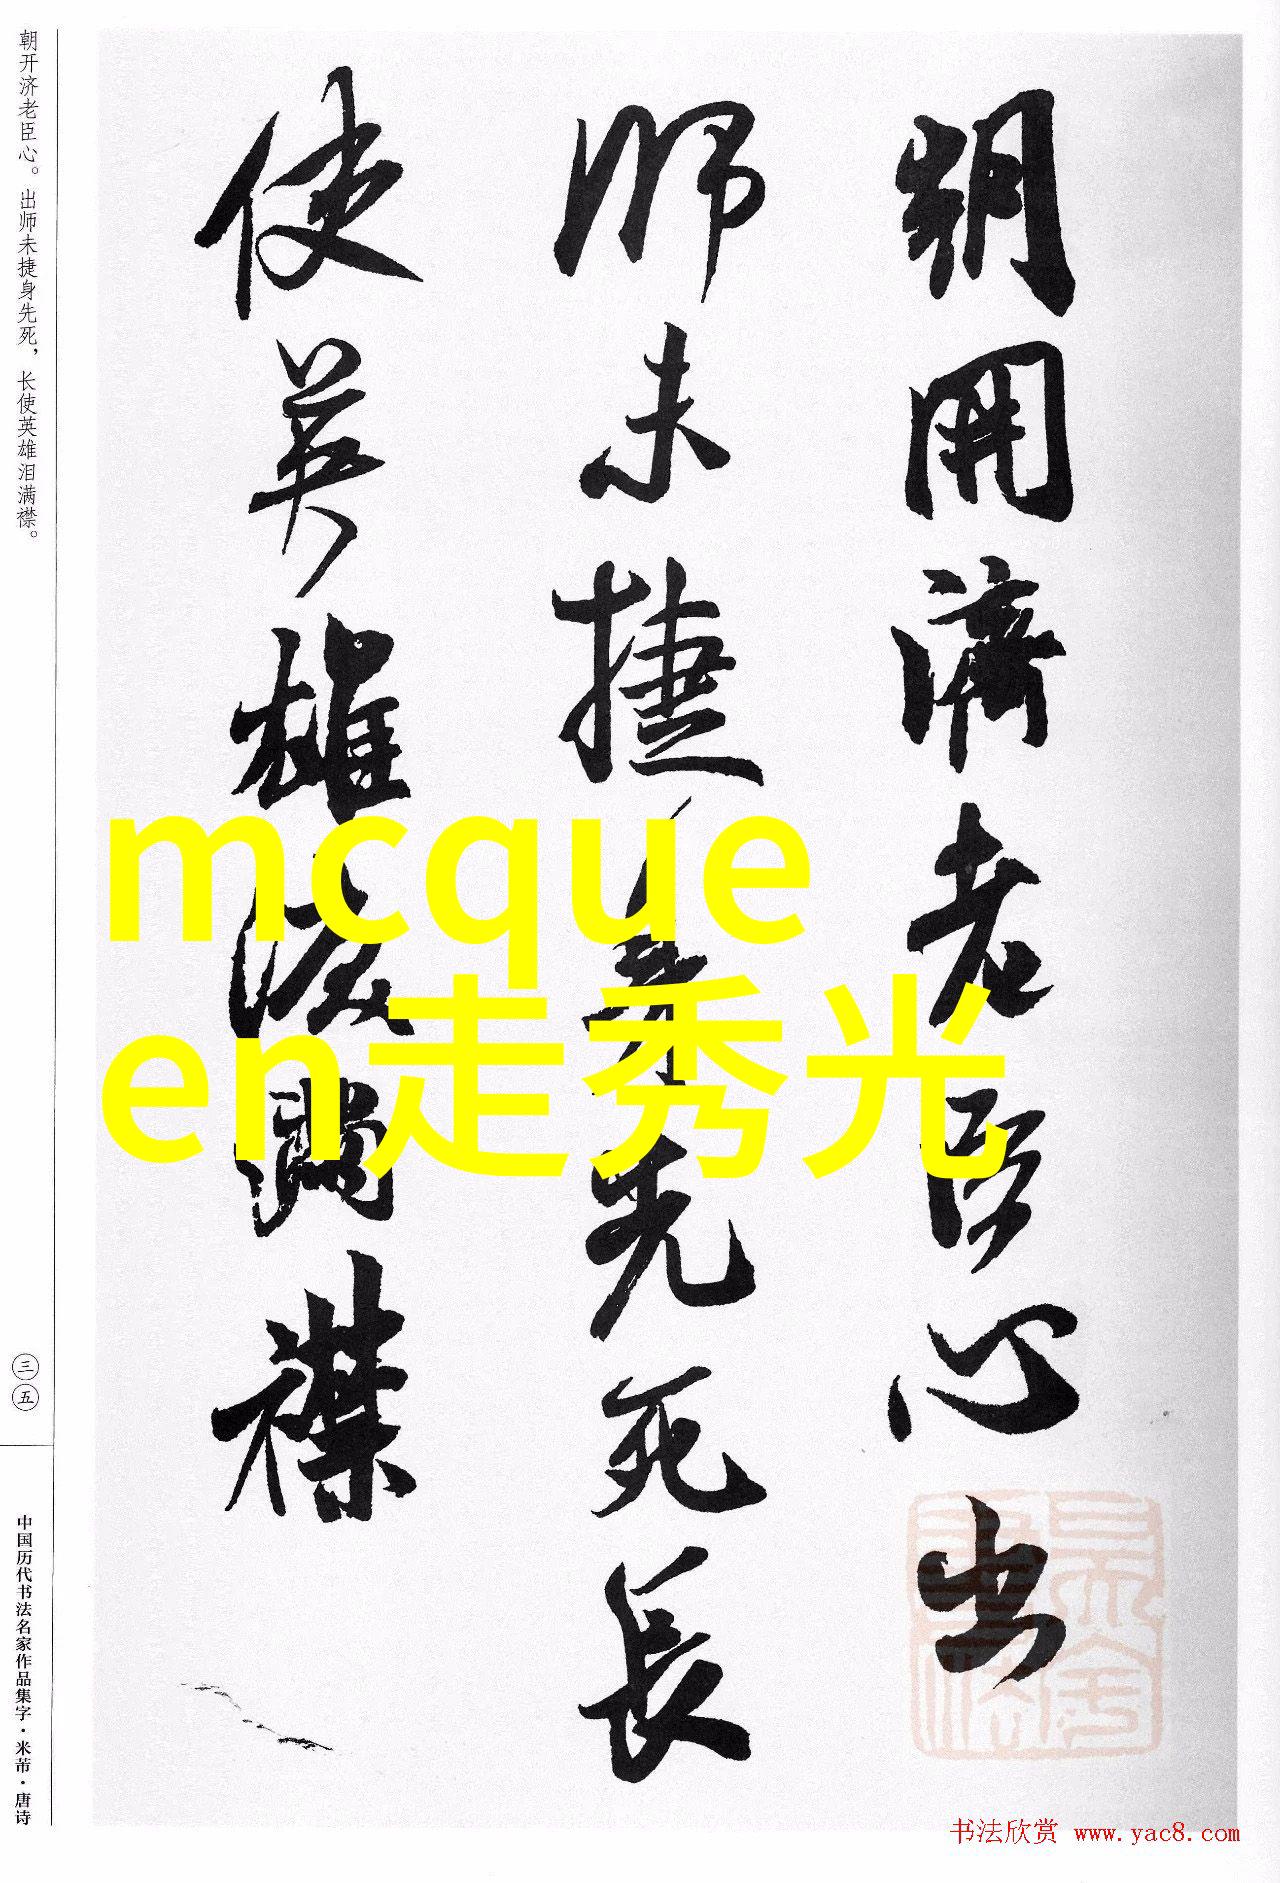 朝開濟老臣心出
師未捷身先死長
使英雄淚滿襟
朝开济老臣心。出师未捷身先死，长使英雄泪满襟。
三五
中国历代书法名家作品集字·米芾·唐诗
mcque
en走秀光
书法欣赏 www.yac8.com